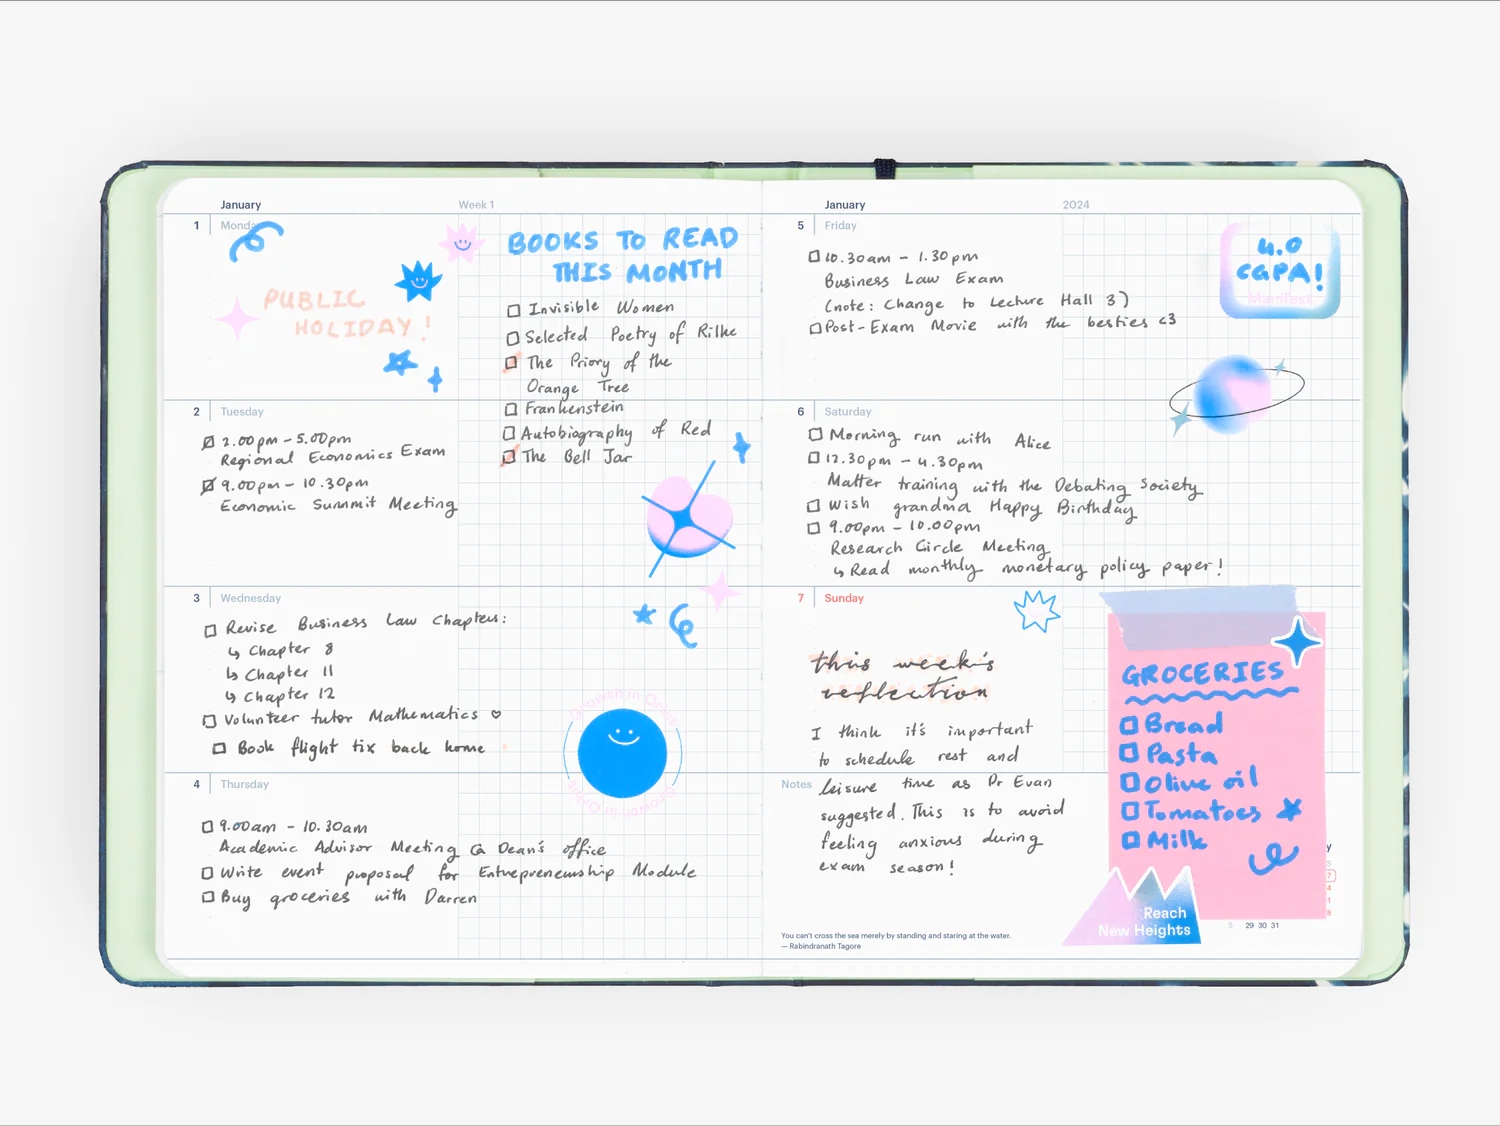 January
Week 1
1
Monday
PUBLIC
HOLIDAY!
BOOKS TO READ
THIS MONTH
Invisible Women
Selected Poetry of Rilke
The Priory of the
Orange Tree
Frankenstein
Autobiography of Red
The Bell Jar
2
Tuesday
2.00pm - 5.00pm
Regional Economics Exam
9.00pm - 10.30pm
Economic Summit Meeting
3
Wednesday
Revise Business Law Chapters:
↳ Chapter 8
↳ Chapter 11
↳ Chapter 12
Volunteer tutor Mathematics ♡
Book flight tix back home
Growth in Orbit
Growth in Orbit
4
Thursday
9.00am - 10.30am
Academic Advisor Meeting @ Dean's office
Write event proposal for Entrepreneurship Module
Buy groceries with Darren
January
2024
5
Friday
10.30am - 1.30pm
Business Law Exam
(note: Change to Lecture Hall 3)
Post-Exam Movie with the besties <3
4.0
CGPA!
Manifest
6
Saturday
Morning run with Alice
12.30pm - 4.30pm
Matter training with the Debating Society
Wish grandma Happy Birthday
9.00pm - 10.00pm
Research Circle Meeting
↳ Read monthly monetary policy paper!
7
Sunday
this week's
reflection
I think it's important
to schedule rest and
Notes
leisure time as Dr Evan
suggested. This is to avoid
feeling anxious during
exam season!
GROCERIES
Bread
Pasta
Olive oil
Tomatoes
Milk
Reach
New Heights
y
5
7
4
1
8
5 29 30 31
You can't cross the sea merely by standing and staring at the water.
— Rabindranath Tagore